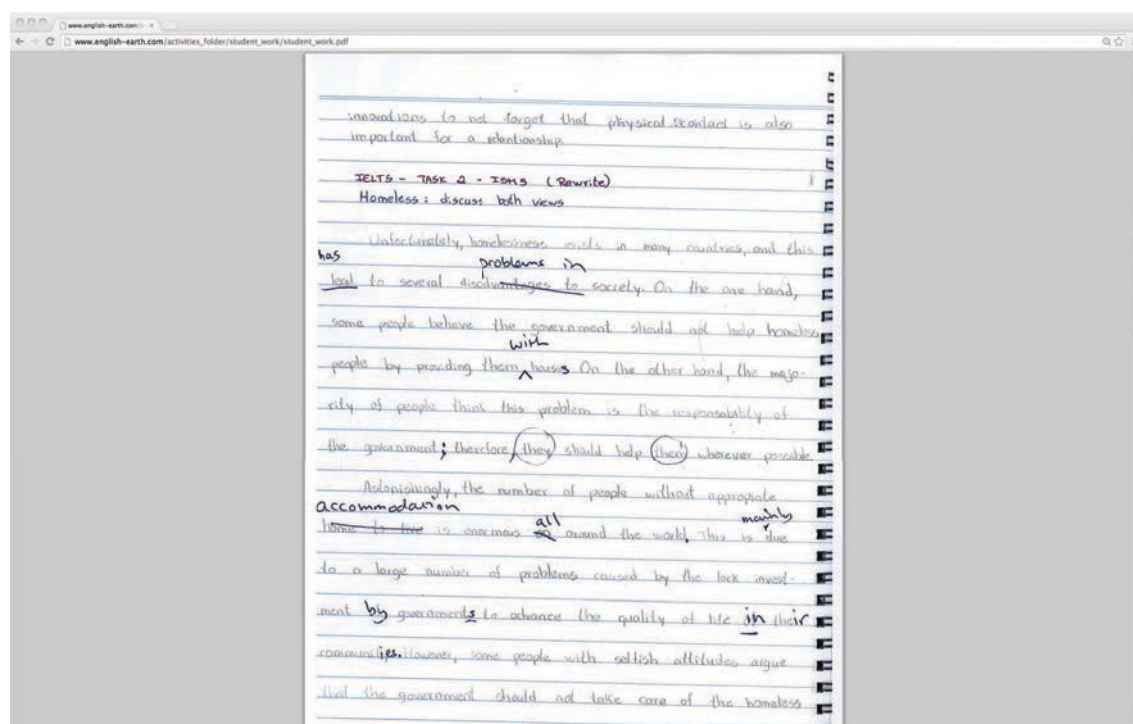 www.english-earth.com
www.english-earth.com/activities_folder/student_work/student_work.pdf
innovations to not forget that physical contact is also
important for a relantionship.
IELTS - TASK 2 - (Rewrite)
Homeless: discuss both views
Unfortunately, homelessness exists in many countries, and this
has problems in
lead to several disadvantages to society. On the one hand,
some people believe the government should not help homeless
with
people by providing them houses On the other hand, the majo-
rity of people think this problem is the responsability of
the government; therefore, they should help them wherever possible.
Astonishingly, the number of people without appropiate
accommodation all mainly
home to live is enormous around the world. This is due
to a large number of problems caused by the lack invest-
ment by governments to advance the quality of life in their
communities. However, some people with selfish attitudes argue
that the government should not take care of the homeless